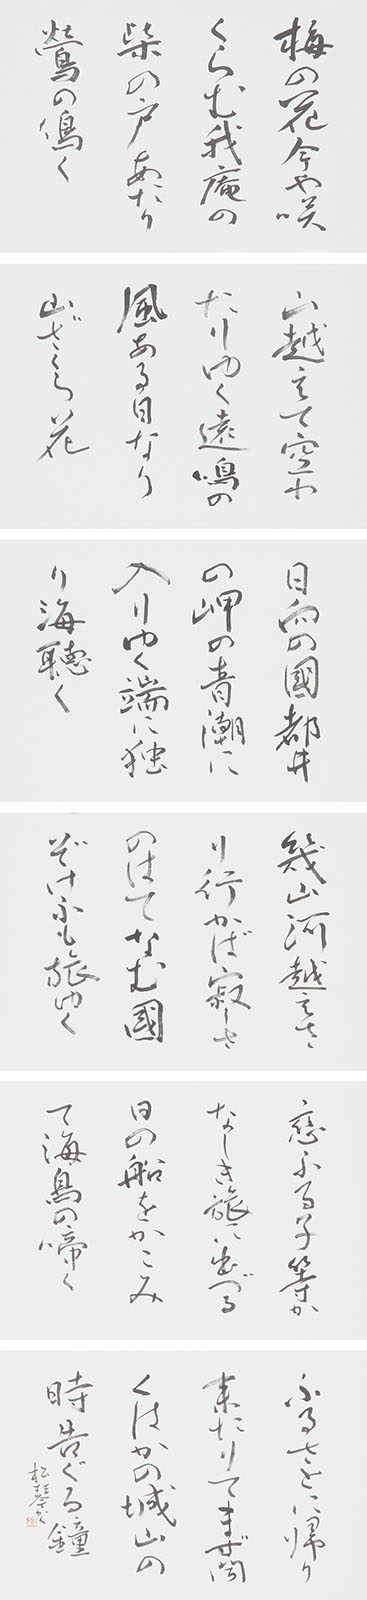 梅の花今や咲
くらむ我庵の
柴の戸あたり
鶯の鳴く
山越えて空わ
たりゆく遠鳴の
風ある日なり
山ざくら花
日向の國都井
の岬の青潮に
入りゆく端に独
り海聴く
幾山河越えさ
り行かば寂しさ
のはてなむ國
ぞけふも旅ゆく
恋ふる子等か
なしき旅に出づる
日の船をかこみ
て海鳥の啼く
ふるさとに帰り
来たりてまず聞
くはかの城山の
時告ぐる鐘